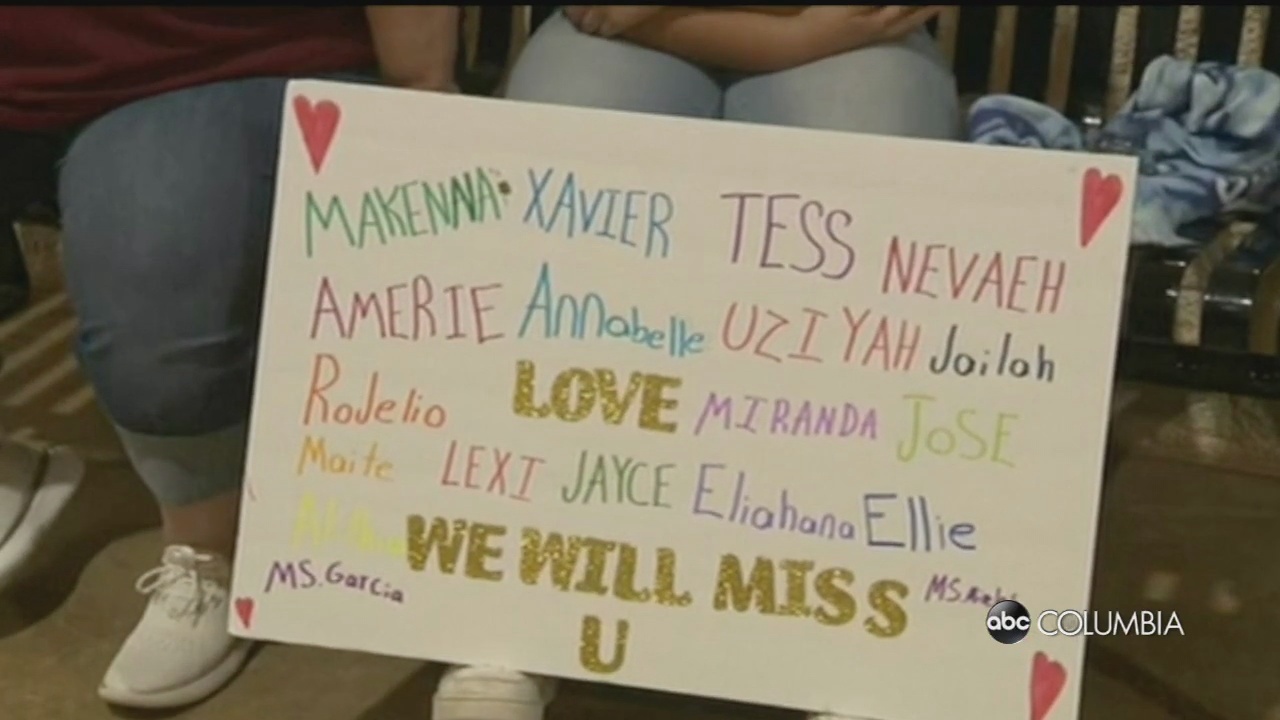 MAKENNA XAVIER TESS NEVAEH
AMERIE Annabelle UZIYAH Jailah
RoJelio LOVE MIRANDA JoSE
Maite LEXI JAYCE Eliahana Ellie
WE WILL MISS
MS. Garcia MS.
U
abc COLUMBIA